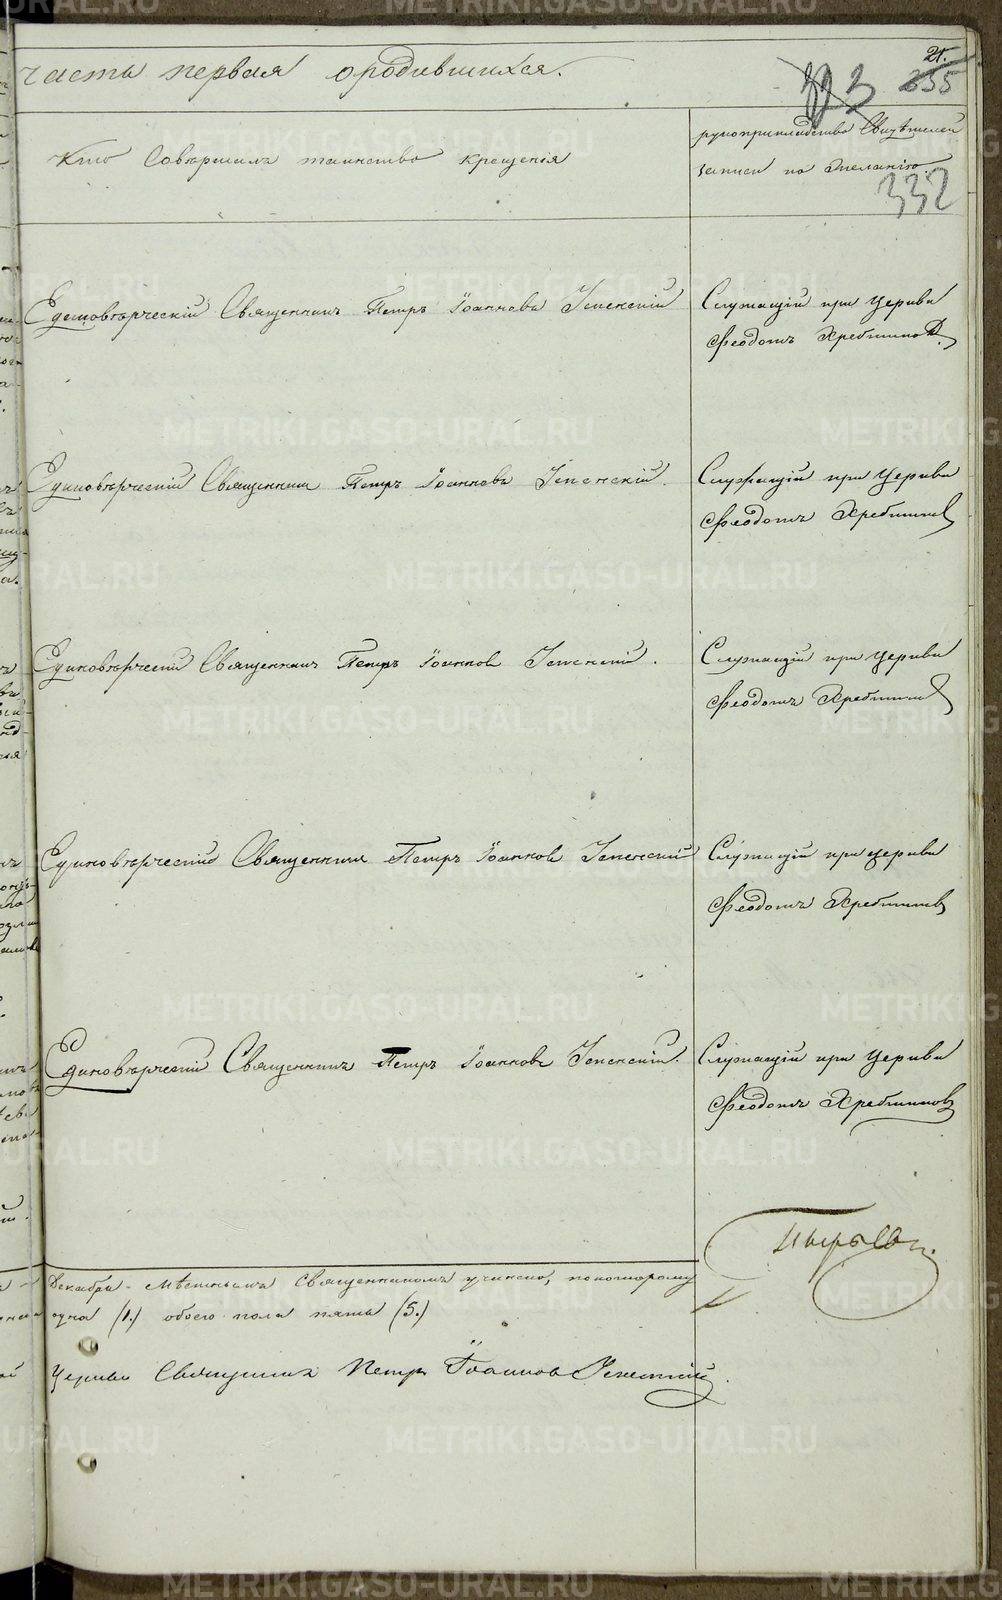 21.
часть первая о родившихся.
323 335
Кто Совершалъ таинство крещенія
рукоприкладство Свидѣтелей
записи по Желанію.
332
Единовѣрческій Священникъ Петръ Іоанновъ
Служащій при Церкви
Феодотъ Хребтиковъ
Единовѣрческій Священникъ Петръ Іоанновъ
Служащій при Церкви
Феодотъ Хребтиковъ
Единовѣрческій Священникъ Петръ Іоанновъ
Служащій при Церкви
Феодотъ Хребтиковъ
Единовѣрческій Священникъ Петръ Іоанновъ
Служащій при Церкви
Феодотъ Хребтиковъ
Единовѣрческій Священникъ Петръ Іоанновъ
Служащій при Церкви
Феодотъ Хребтиковъ
Декабрь Мѣстнымъ Священникомъ учинено, по которому
одна (1.) обоего пола пять (5.)
Церкви Священникъ Петръ Іоанновъ
METRIKI.GASO-URAL.RU